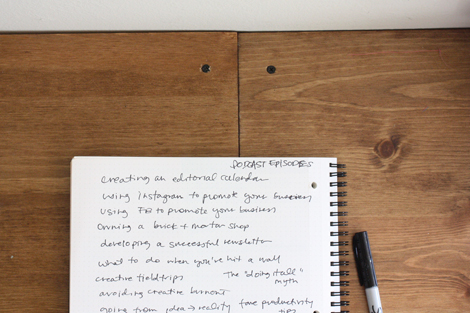 PODCAST EPISODES
creating an editorial calendar
using Instagram to promote your business
using FB to promote your business
owning a brick + mortar shop
developing a successful newsletter
what to do when you've hit a wall
creative fieldtrips
The "doing it all" myth
avoiding creative burnout
going from idea → reality
fave productivity tips